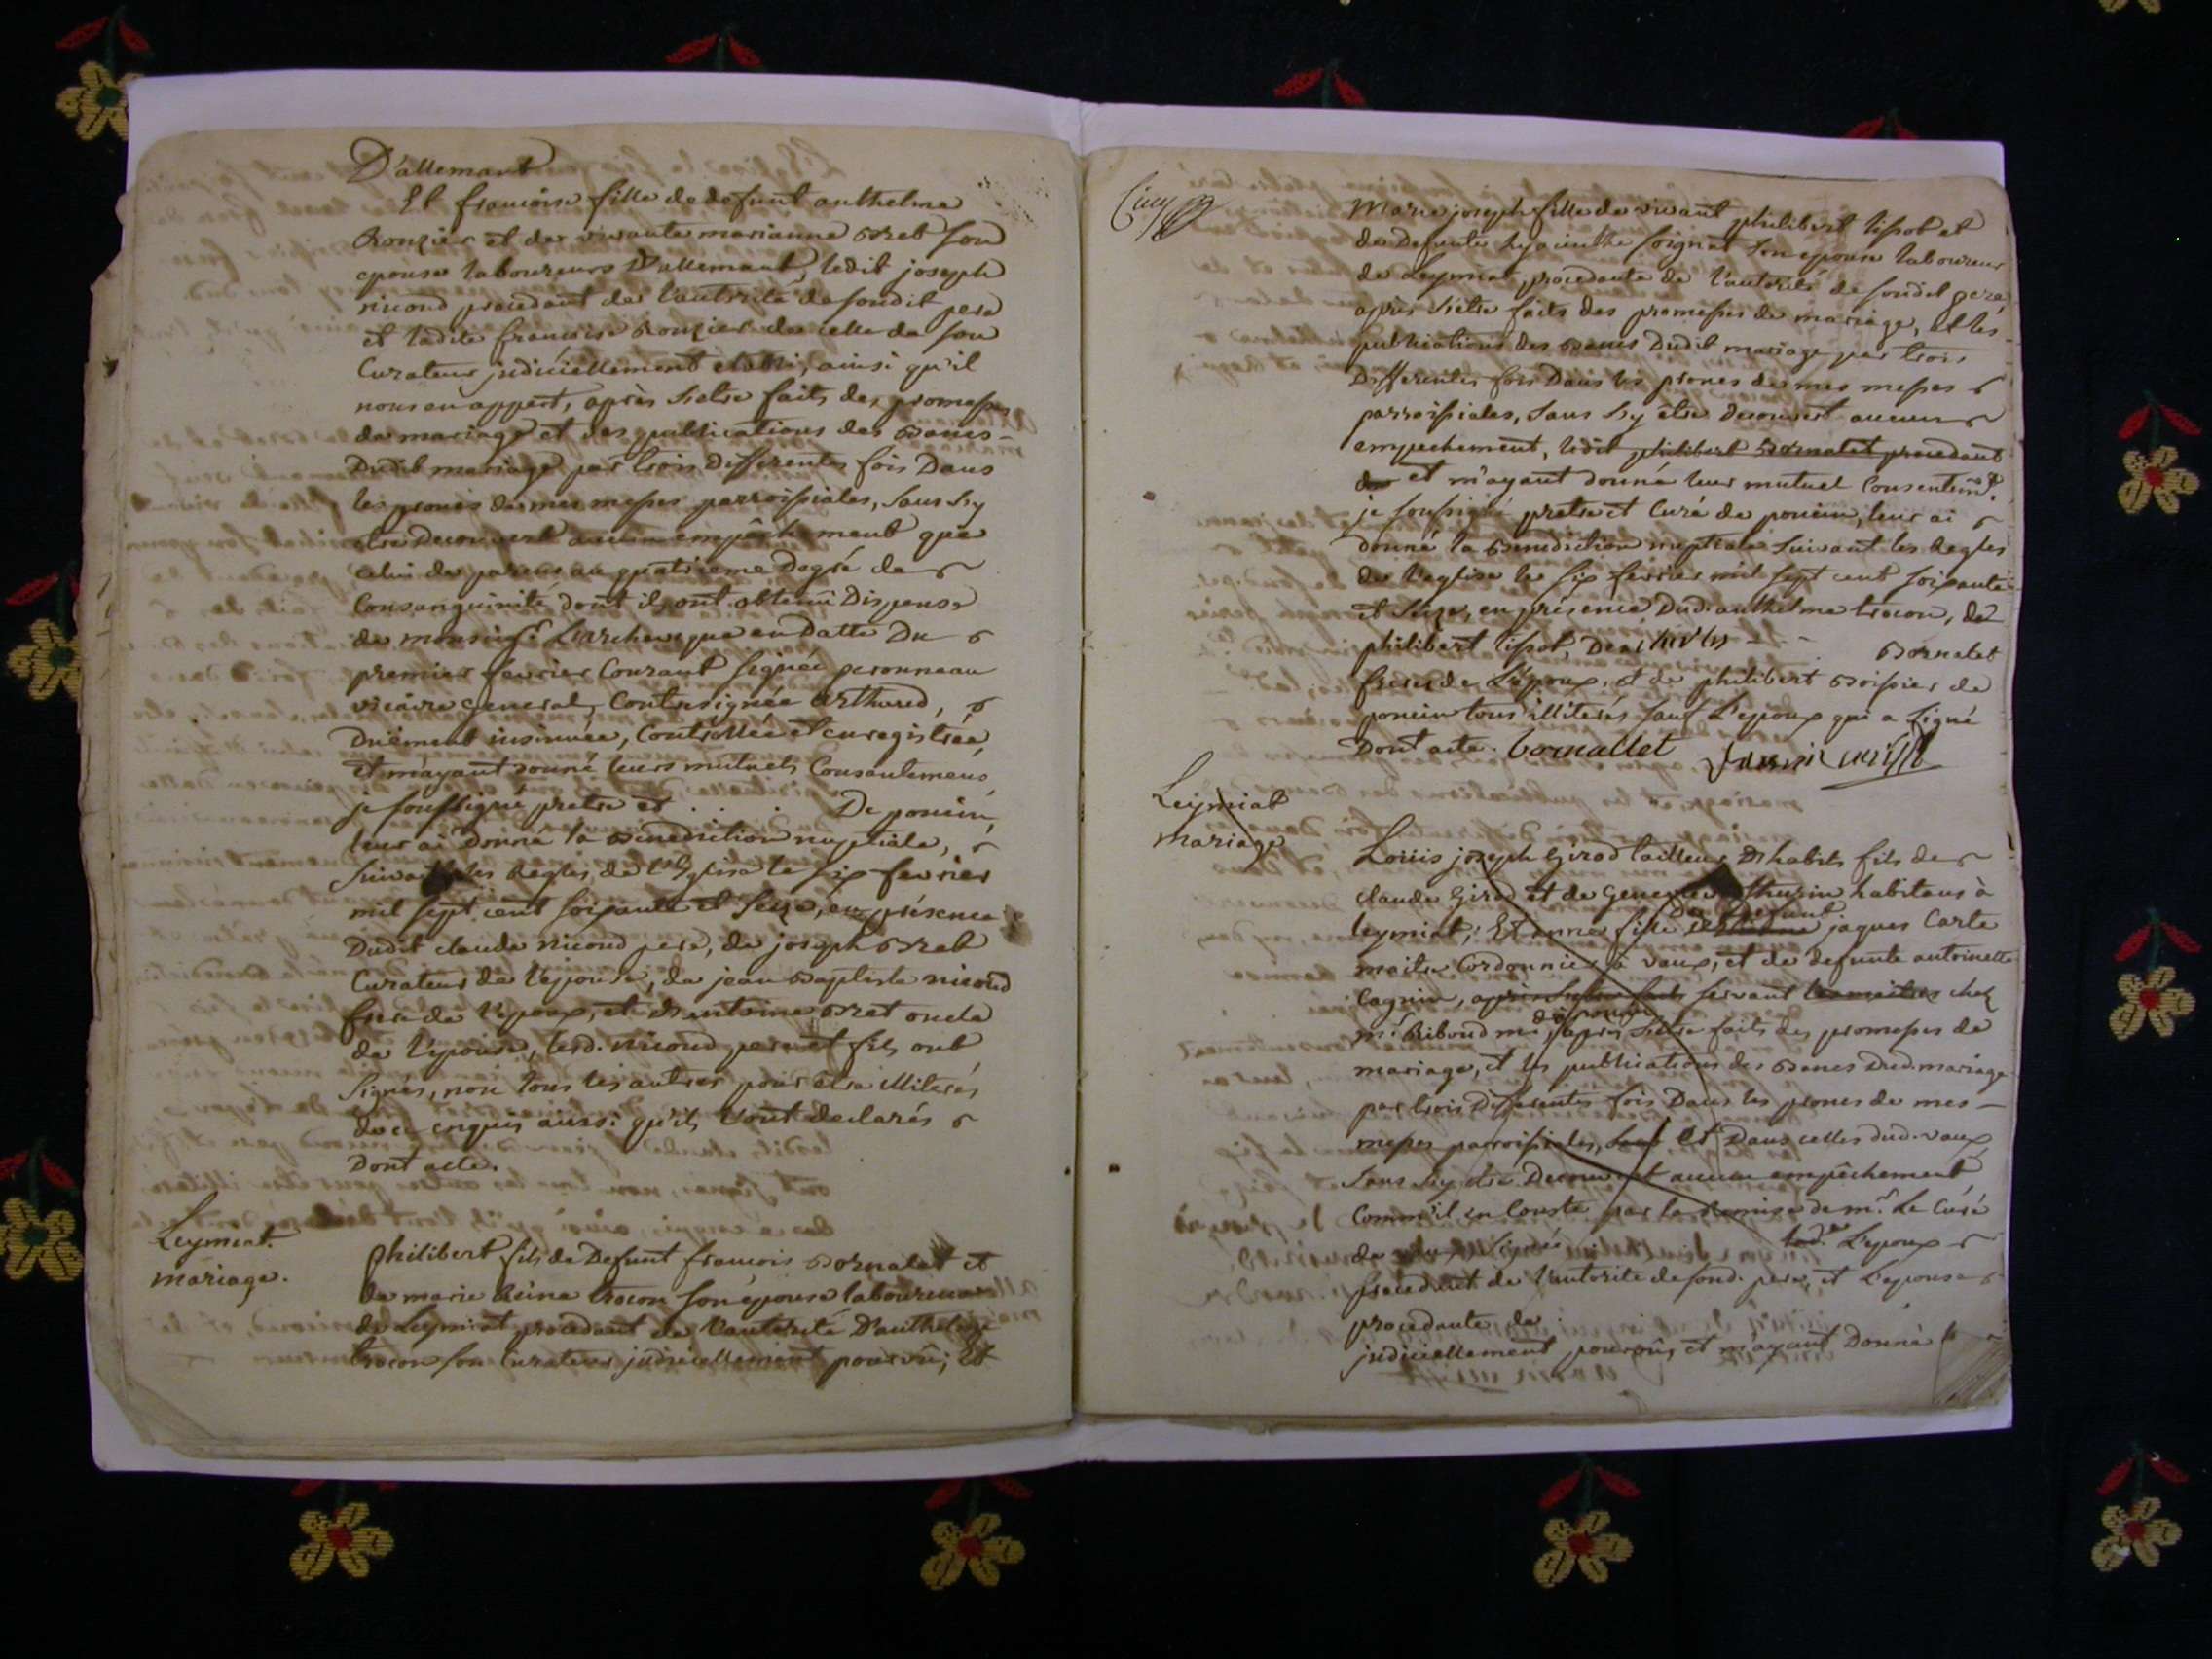 D'allemant
Et francoise fille de defunt anthelme
Ronzier et de vivante marianne Bret son
epouse laboureurs D'allemant, ledit joseph
nicond procedant de l'autorité de sondit pere
et ladite francoise Ronzier de celle de son
Curateur judiciellement etabli, ainsi qu'il
nous en appert, après s'etre faits des promesses
de mariage et des publications des Bancs
Dudit mariage par trois differentes fois Dans
les prones de mes messes parroissiales, sans s'y
etre Decouvert aucun empêchement que
celui de parens au quatrieme Degré de
Consanguinité dont ils ont obtenû Dispense
de monseigr L'archeveque en Datte Du
premier fevrier Courant signée peronneau
vicaire general, Contresignée arthaud,
Duëment insinuée, Controllée et enregistrée,
et m'ayant donné leurs mutuels Consentemens
je soussigné pretre et . . . De poncin,
leur ai Donné la Benediction nuptiale,
suivant les Regles de l'Eglise le six fevrier
mil sept cent soixante et seize, en présence
Dudit claude nicond pere, de joseph Bret
Curateur de l'epouse, de jean Baptiste nicond
frere de l'epoux, et d'antoine Bret oncle
de l'epouse, lesd. nicond pere et fils ont
signés, non tous les autres pour etre illiterés
de ce enquis ainsi qu'ils l'ont declarés
Dont acte.
Leymiat.
mariage.
philibert fils de Defunt francois Bornatet et
de marie Reine trocon son épouse laboureurs
de Leymiat procedant de l'autorité D'anthelme
trocon son Curateur judiciellement pourvû; Et
Marie joseph fille de vivant philibert tissot et
de Defunte hyacinthe soignat son epouse laboureur
de Leymiat, procedante de l'autorité de sondit pere
après s'etre faits des promesses de mariage, et les
publications des Bancs Dudit mariage par trois
Differentes fois Dans les prones de mes messes
parroissiales, sans s'y être Decouvert aucun
empechement, ledit philibert Bornatet procedant
de et m'ayant donné leur mutuel Consentemt.
je soussigné pretre et Curé de poncin, leur ai
donné la Benediction nuptiale suivant les Regles
de l'eglise le six fevrier mil sept cent soixante
et seize, en présence Dud. anthelme trocon, de
philibert tissot, De Bornatet
freres de L'epoux, et de philibert Boissier de
poncin tous illiterés sauf L'epoux qui a signé
Dont acte. bornattet
Leymiat
mariage
Loüis joseph Girod tailleur D'habits fils de
claude Girod et de habitans à
leymiat; Et anne fille de Defunt jaques Carte
maitre Cordonnier à vaux, et de defunte antoinette
Cagnin, après s'etre faits servant chez
mr. Riboud me de poncin, après s'etre faits des promesses de
mariage, et les publications des Bancs Dud. mariage
par trois Differentes fois Dans les prones de mes
messes parroissiales, sans Et Dans celles dud. vaux
sans s'y etre Decouvert aucun empêchement
Comm'il en Conste par la Remise de mr. Le Curé
de vaux signée led. L'epoux
procedant de l'autorite de sond. pere, et L'epouse
procedante de
judiciellement pourvûs, et m'ayant Donné